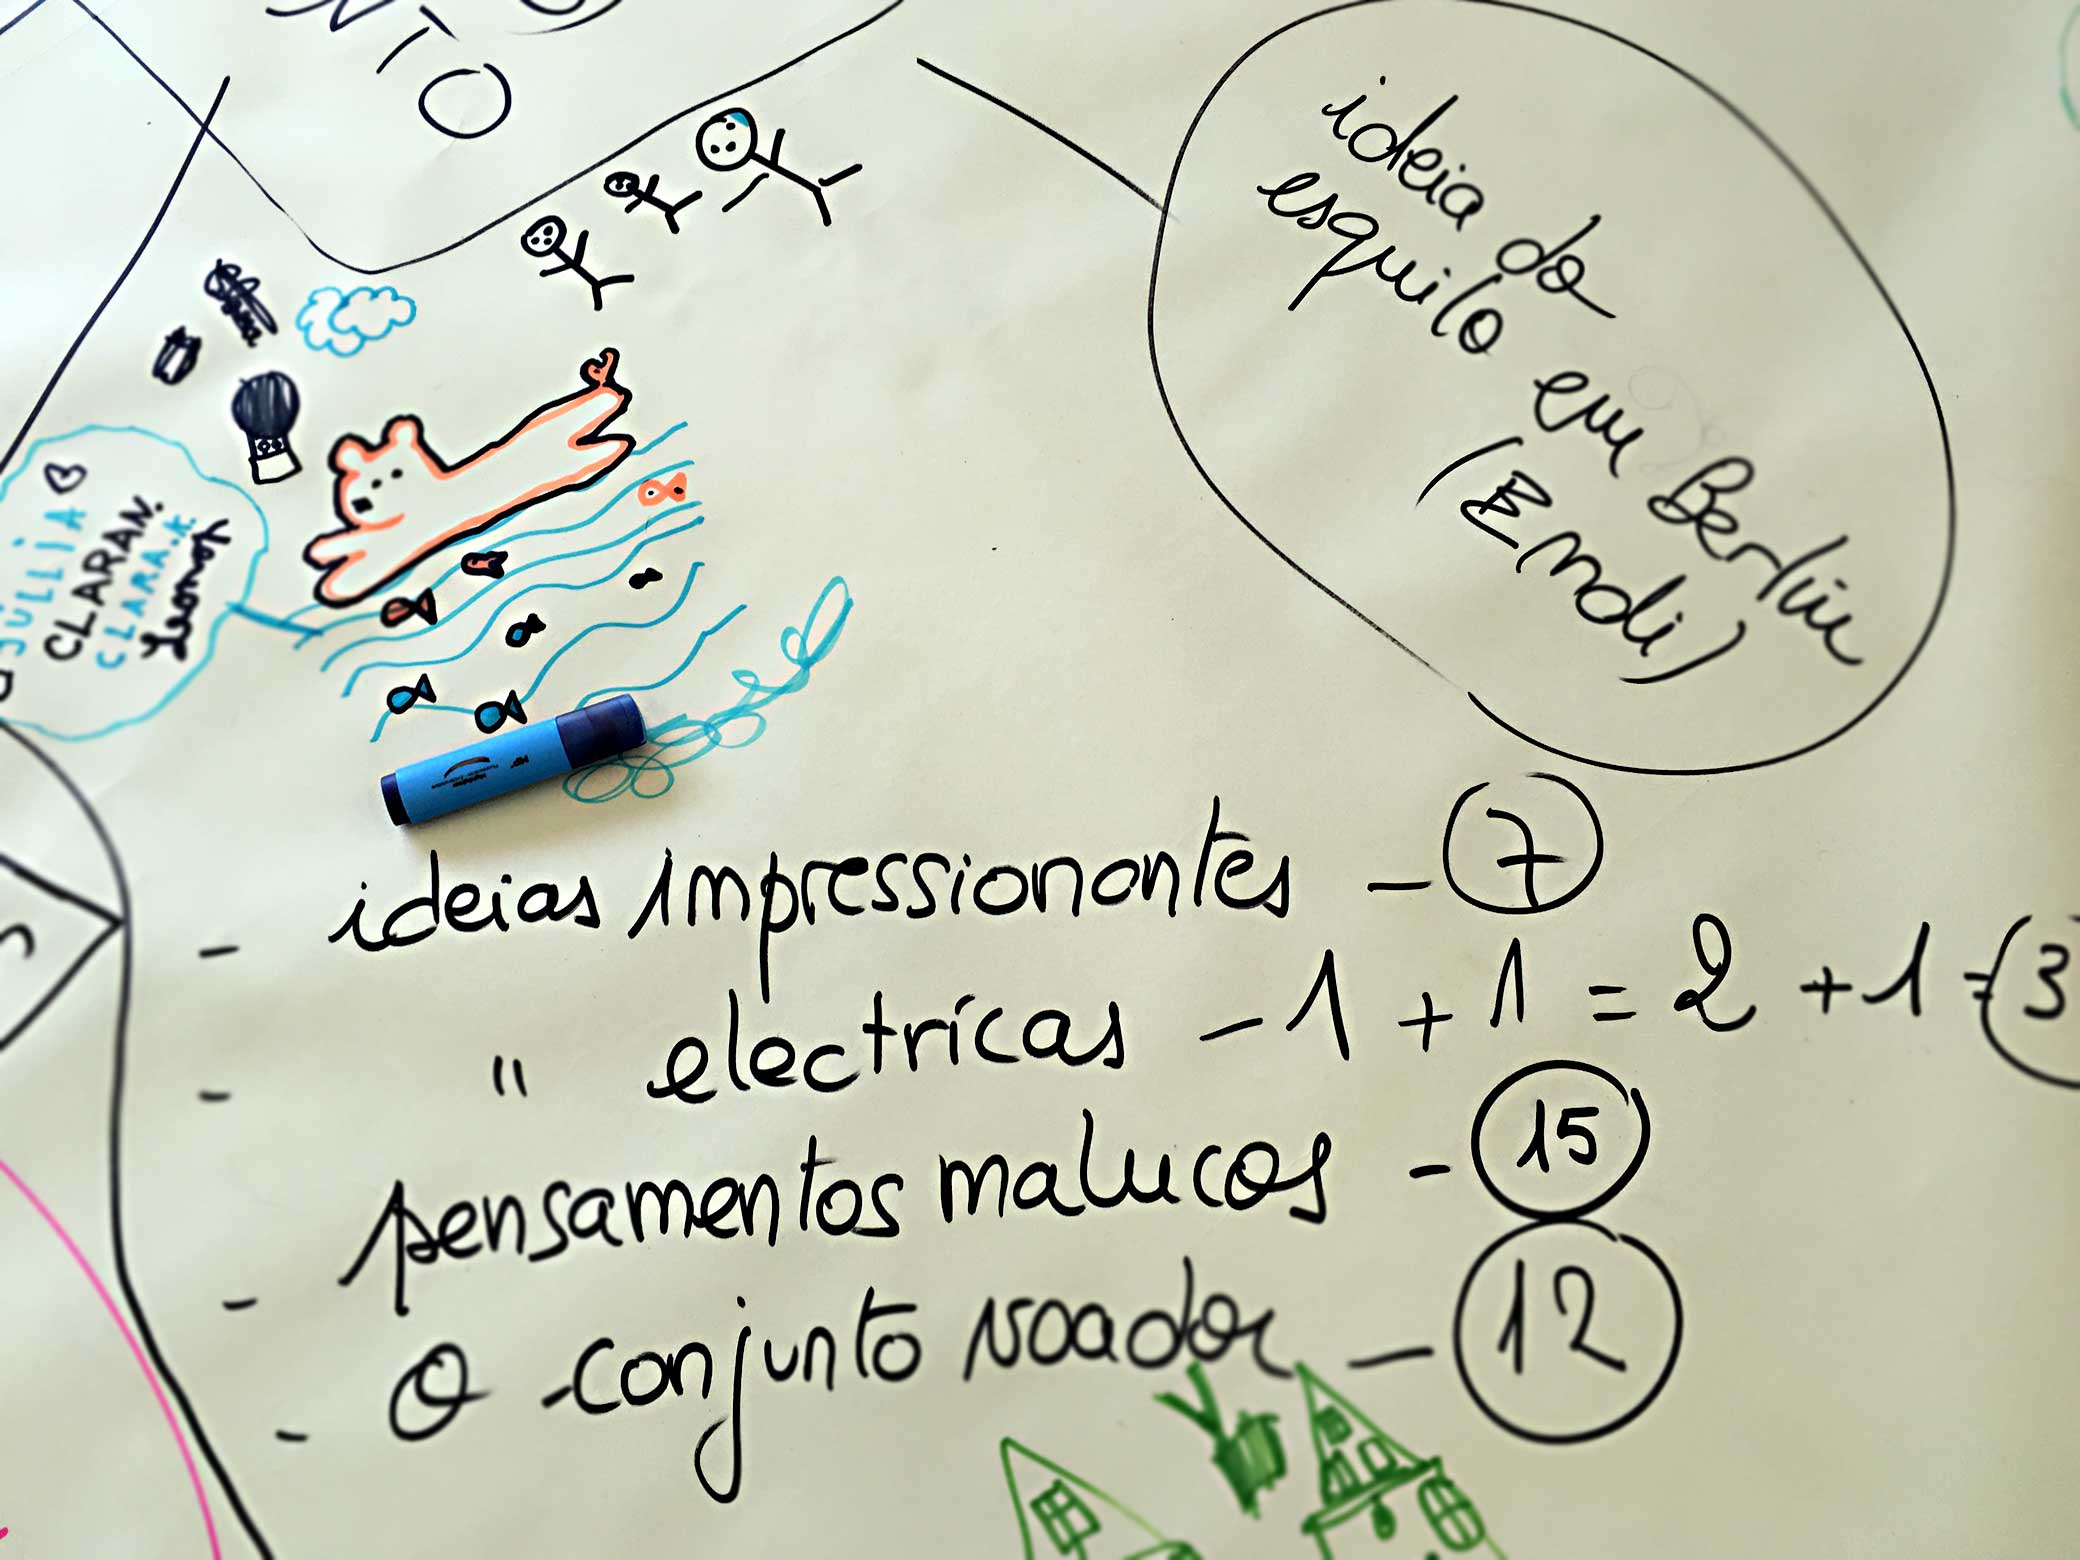 NTO
ideia do
esquilo em Berlim
(Endi)
JÚLIA
CLARA N.
CLARA.A
Leonor
- ideias impressionantes - 7
- " electricas - 1 + 1 = 2 + 1 = 3
- pensamentos malucos - 15
- O - conjunto voador - 12